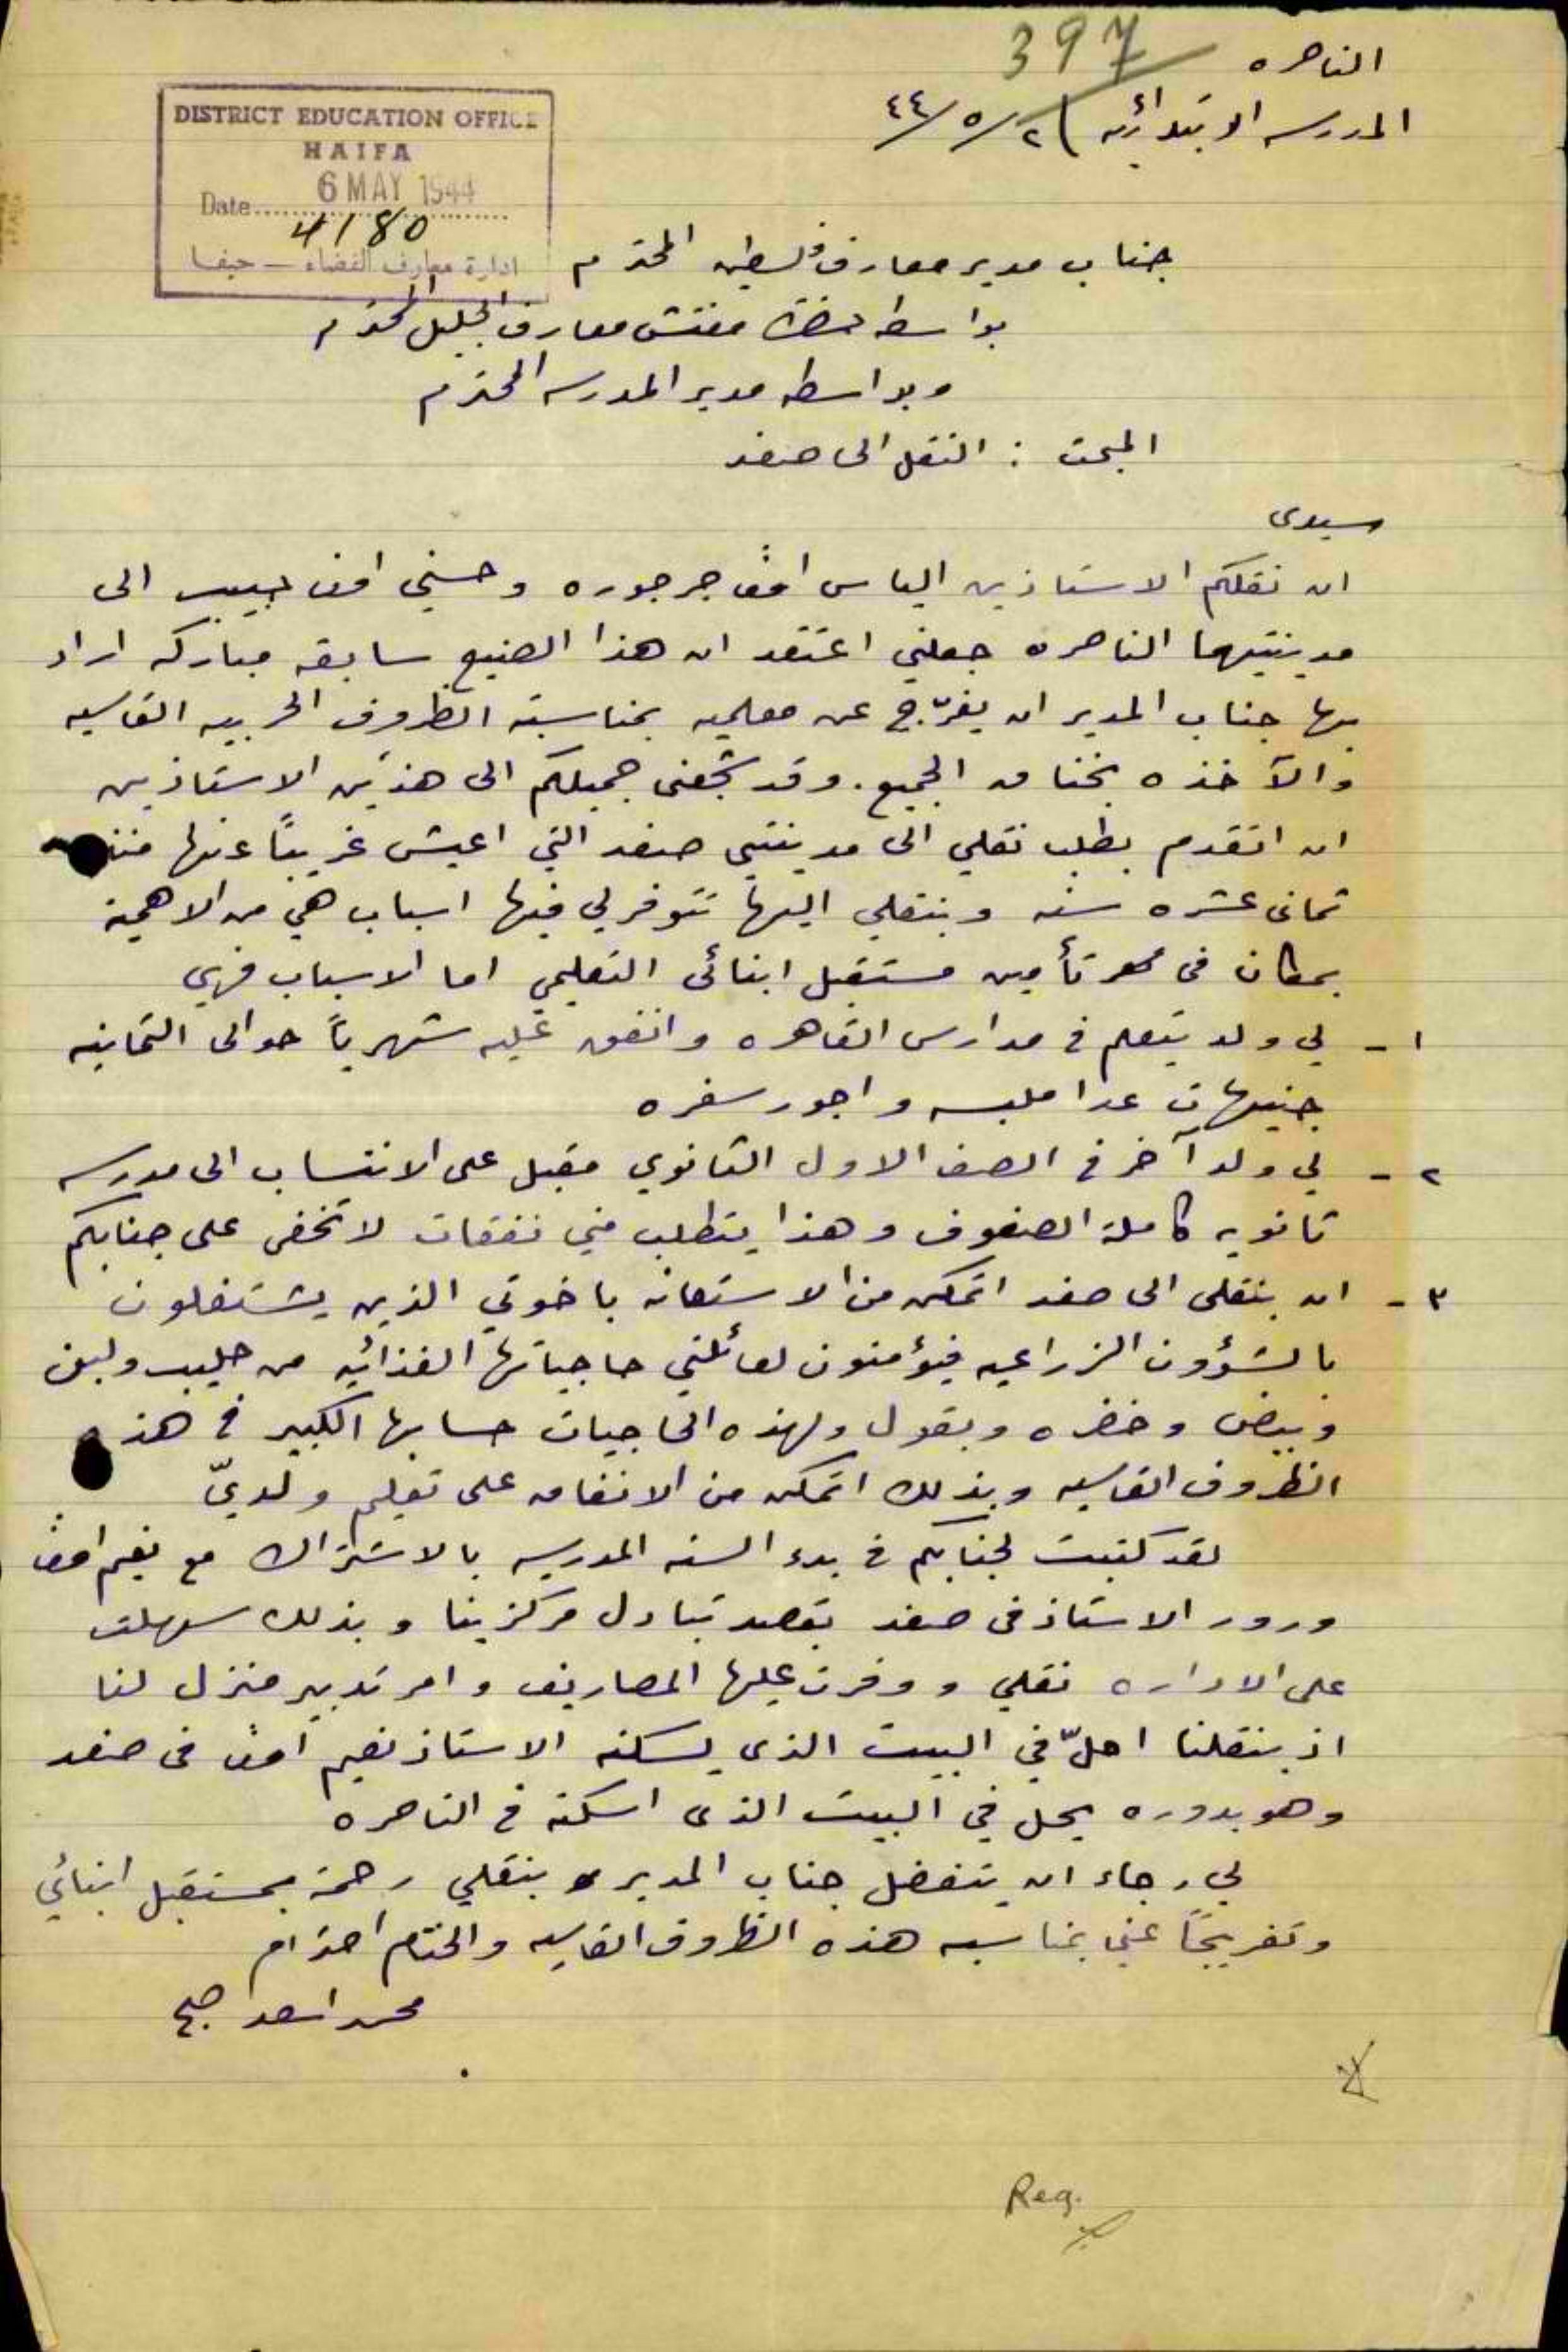 397
الناصره
المدرسه الابتدائيه ) ٢/٥/٤٤
DISTRICT EDUCATION OFFICE
HAIFA
Date 6 MAY 1944
4180
ادارة معارف القضاء — حيفا
جناب مدير معارف فلسطين المحترم
بواسطة حضرة مفتش معارف الجليل المحترم
وبواسطه مدير المدرسه المحترم
المبحث : النقل الى صفد
سيدى
ان نقلكم الاستاذين الياس افندي جرجوره وحسني افندي حبيب الى
مدينتيهما الناصره جعلني اعتقد ان هذا الصنيع سابقه مباركه اراد
بها جناب المدير ان يفرّج عن معلميه بمناسبة الظروف الحربيه القاسيه
والآخذه بخناق الجميع. وقد شجعنى جميلكم الى هذين الاستاذين
ان اتقدم بطلب نقلي الى مدينتي صفد التي اعيش غريباً عنها منذ
ثمانى عشره سنه وبنقلي اليها تتوفر لي فيها اسباب هي من الاهمية
بمكان فى تأمين مستقبل ابنائى التعليمي اما الاسباب فهي
١ - لي ولد يتعلم في مدارس القاهره وانفق عليه شهرياً حوالى الثمانيه
جنيهات عدا ملبسه واجور سفره
٢ - لي ولد آخر في الصف الاول الثانوي مقبل على الانتساب الى مدرسه
ثانويه كاملة الصفوف وهذا يتطلب مني نفقات لا تخفى على جنابكم
٣ - ان بنقلى الى صفد اتمكن من الاستعانه باخوتي الذين يشتغلون
بالشؤون الزراعيه فيؤمنون لعائلتي حاجياتها الغذائيه من حليب ولبن
وبيض وخضره وبقول ولهذه الحاجيات حسابها الكبير في هذه
الظروف القاسيه وبذلك اتمكن من الانفاق على تعليم ولديّ
لقد كتبت لجنابكم في بدء السنه المدرسيه بالاشتراك مع نعيم افندي
ورور الاستاذ فى صفد بقصد تبادل مركزينا وبذلك سهلت
على الاداره نقلي ووفرت عليها المصاريف وامر تدبير منزل لنا
اذ بنقلنا احلّ في البيت الذى يسكنه الاستاذ نعيم افندي فى صفد
وهو بدوره يحل في البيت الذى اسكنه في الناصره
لي رجاء ان يتفضل جناب المدير بنقلي رحمة بمستقبل ابنائي
وتفريجاً عني بمناسبه هذه الظروف القاسيه والختام احترام
محمد اسعد صبح
Reg.